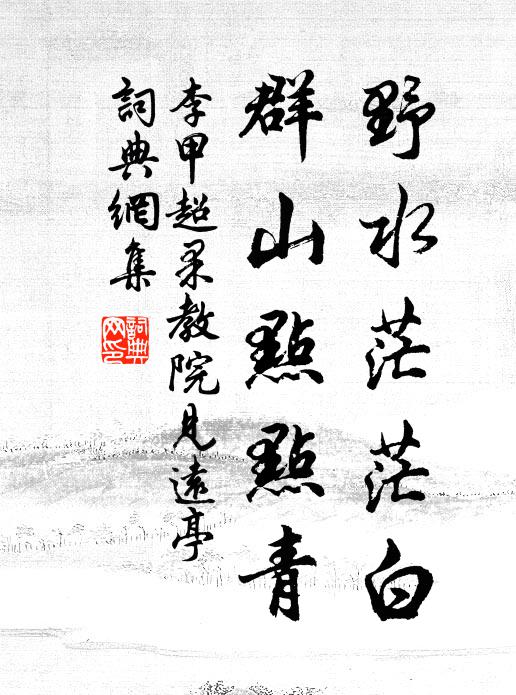 野水茫茫白
群山點點青
李甲超果教院見遠亭
詞典網集
詞典
网印